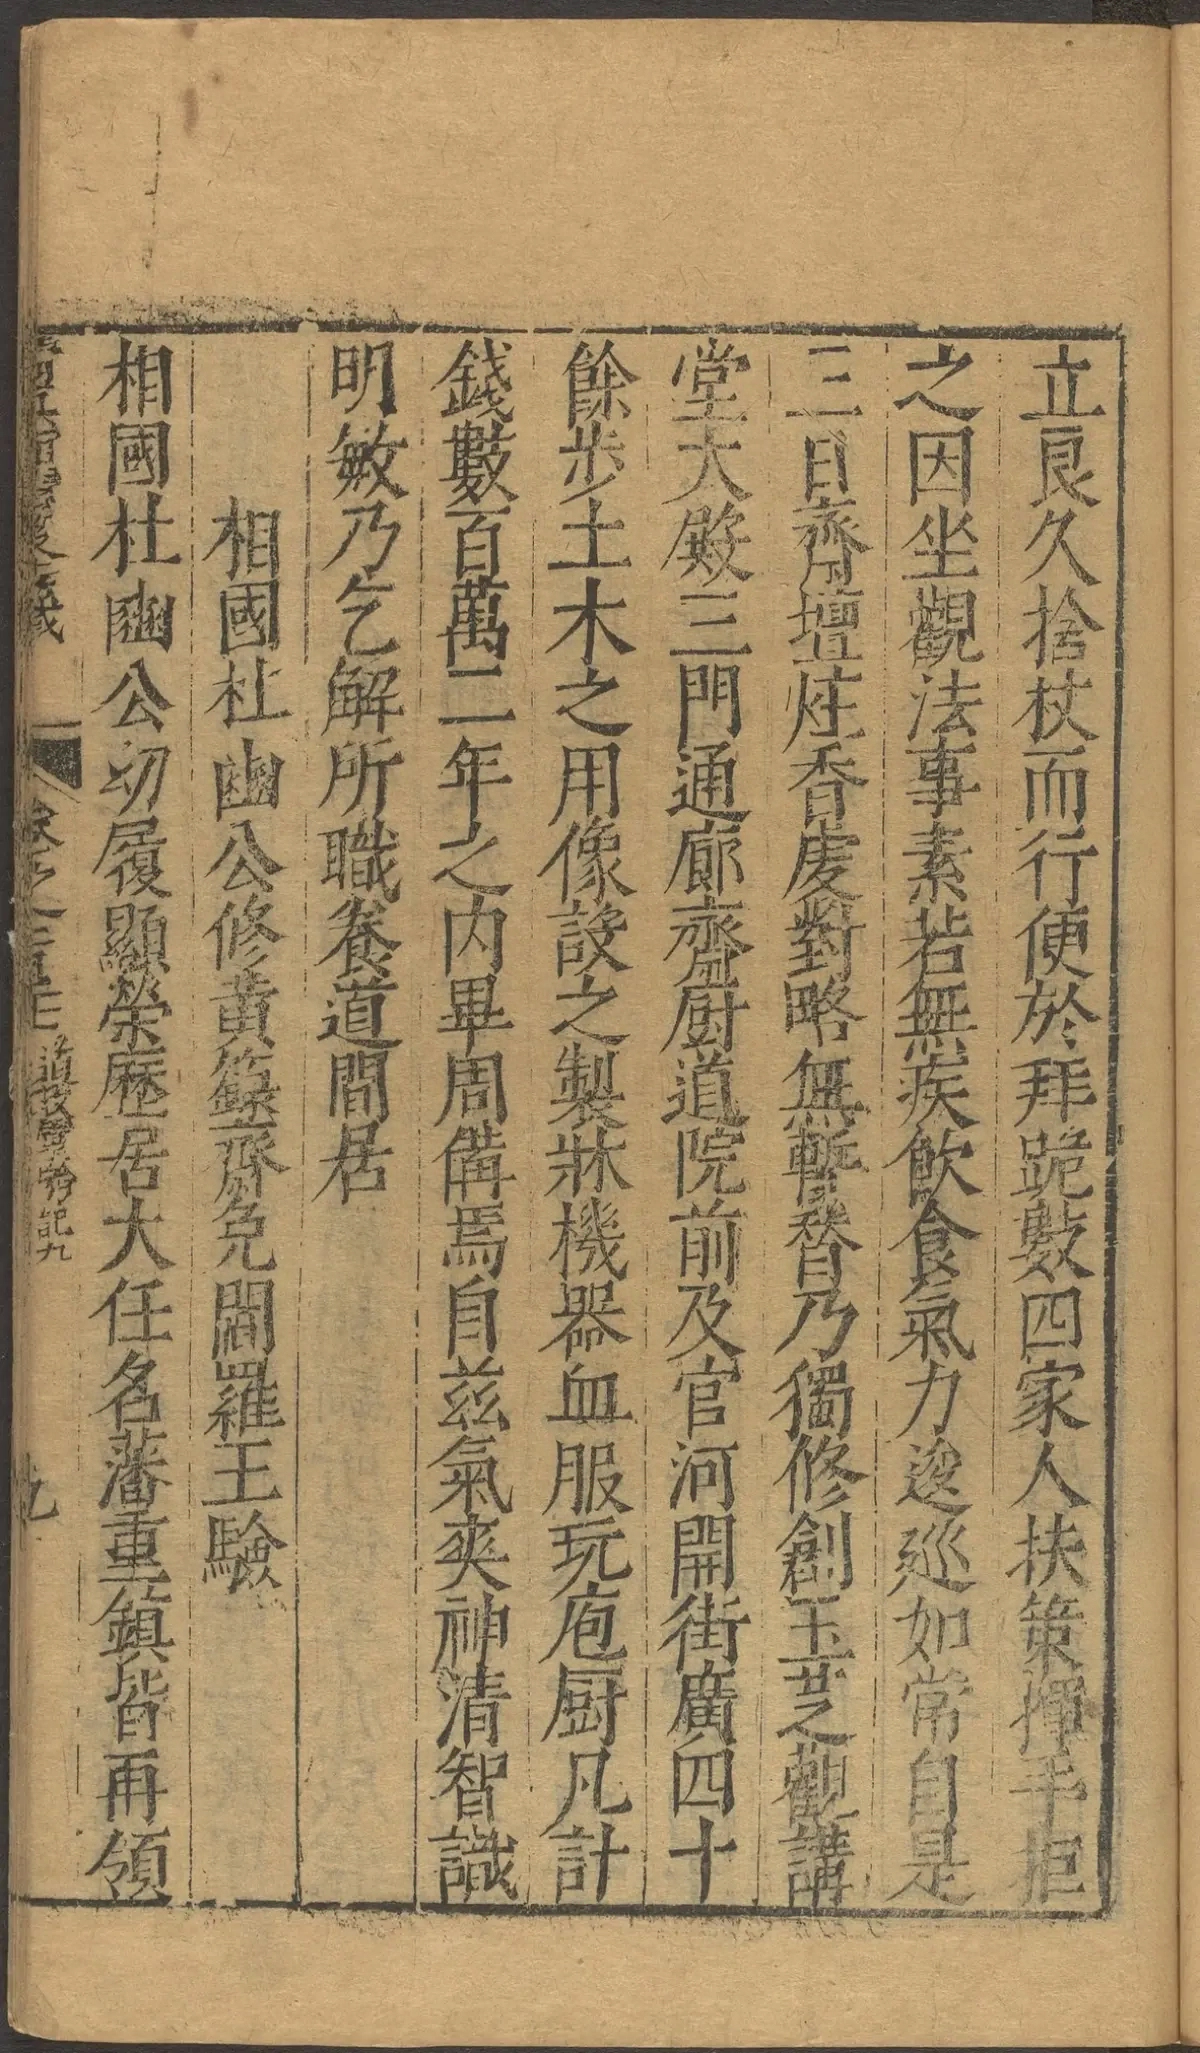 立良久捨杖而行便於拜跪數四家人扶策揮手拒
之因坐觀法事素若無疾飲食氣力逡巡如常自是
三日齋壇炷香虔對略無暫替乃獨修創玉芝觀講
堂大殿三門通廊齋厨道院前及官河開街廣四十
餘步土木之用像設之製牀機器皿服玩庖厨凡計
錢數百萬二年之内畢周備焉自兹氣爽神清智識
明敏乃乞解所職養道閒居
相國杜豳公修黄籙齋免閻羅王驗
相國杜豳公初履顯榮歷居大任名藩重鎮皆再領
卷之一百二十 道教靈驗記九
九